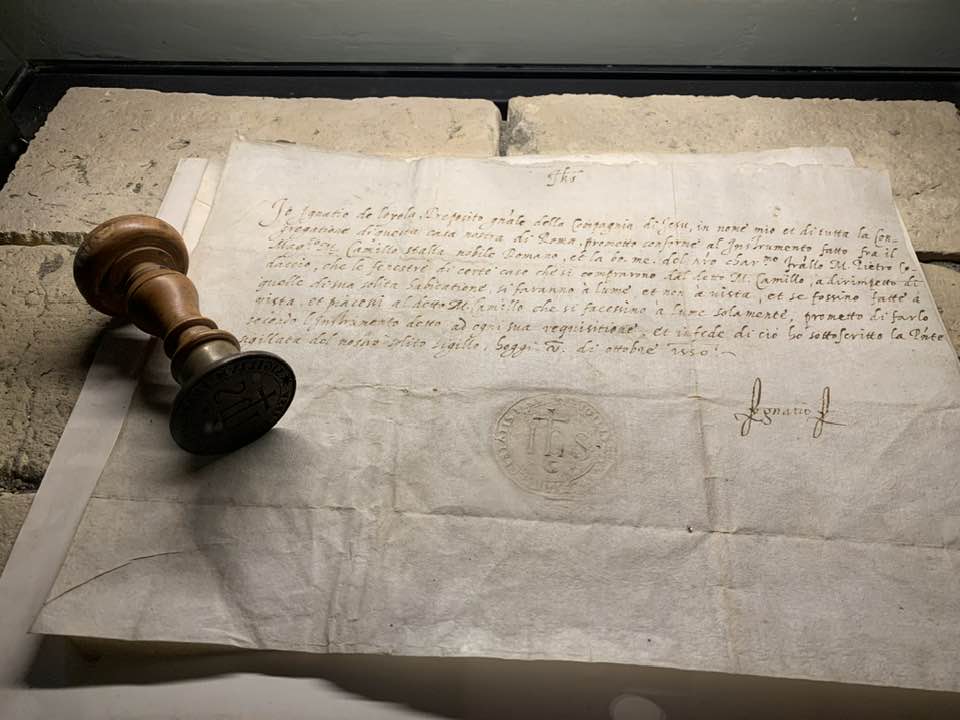 Jhs
Io Ignatio de loyola Preposito gnãle della Compagnia di Jesu, in nome mio et di tutta la Con=
gregatione di questa casa nostra di Roma, prometto conforme al Instrumento fatto fra il
Camillo stalla nobile Romano, et la bo. me. del nro char.mo frãllo M. Pietro Co
daccio, che le fenestre di certe case che si comprarono dal detto M. Camillo, a dirimpetto di
quelle di sua solita habitatione, si faranno à lume, et non a vista, et se fossino fatte à
vista, et paressi al detto M. Camillo che si facessino a lume solamente, prometto di farlo
secondo l'Instrumento detto ad ogni sua requisitione, et in fede di ciò hò sottoscritto la Pñte
sigillata del nostro solito sigillo, hoggi di ottobre 1550.
Ignatio
Ihs